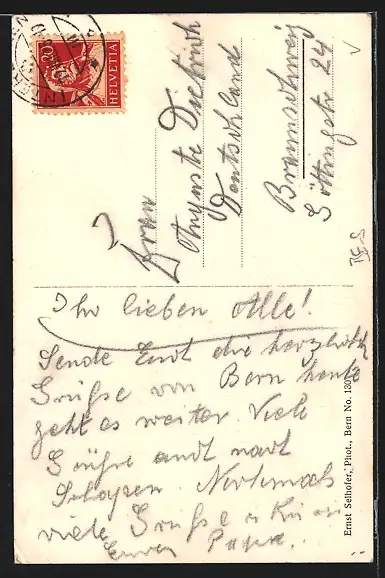 20
HELVETIA
Frau
Auguste Dietrich
Deutschland
Braunschweig
Göttingstr 24
Ihr lieben Alle!
Sende Euch die herzlichst
Grüße von Bern heute
geht es weiter Viele
Grüße auch nach
Nochmals
viele Grüße u Küsse
Euer Papa.
Ernst Selhofer, Phot., Bern No.